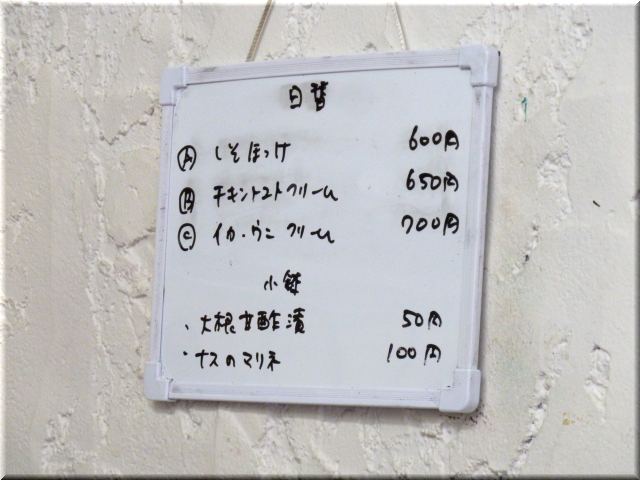 日替
Ⓐ しそほっけ 600円
Ⓑ チキントマトクリーム 650円
Ⓒ イカ・ウニ クリーム 700円
小鉢
・大根甘酢漬 50円
・ナスのマリネ 100円